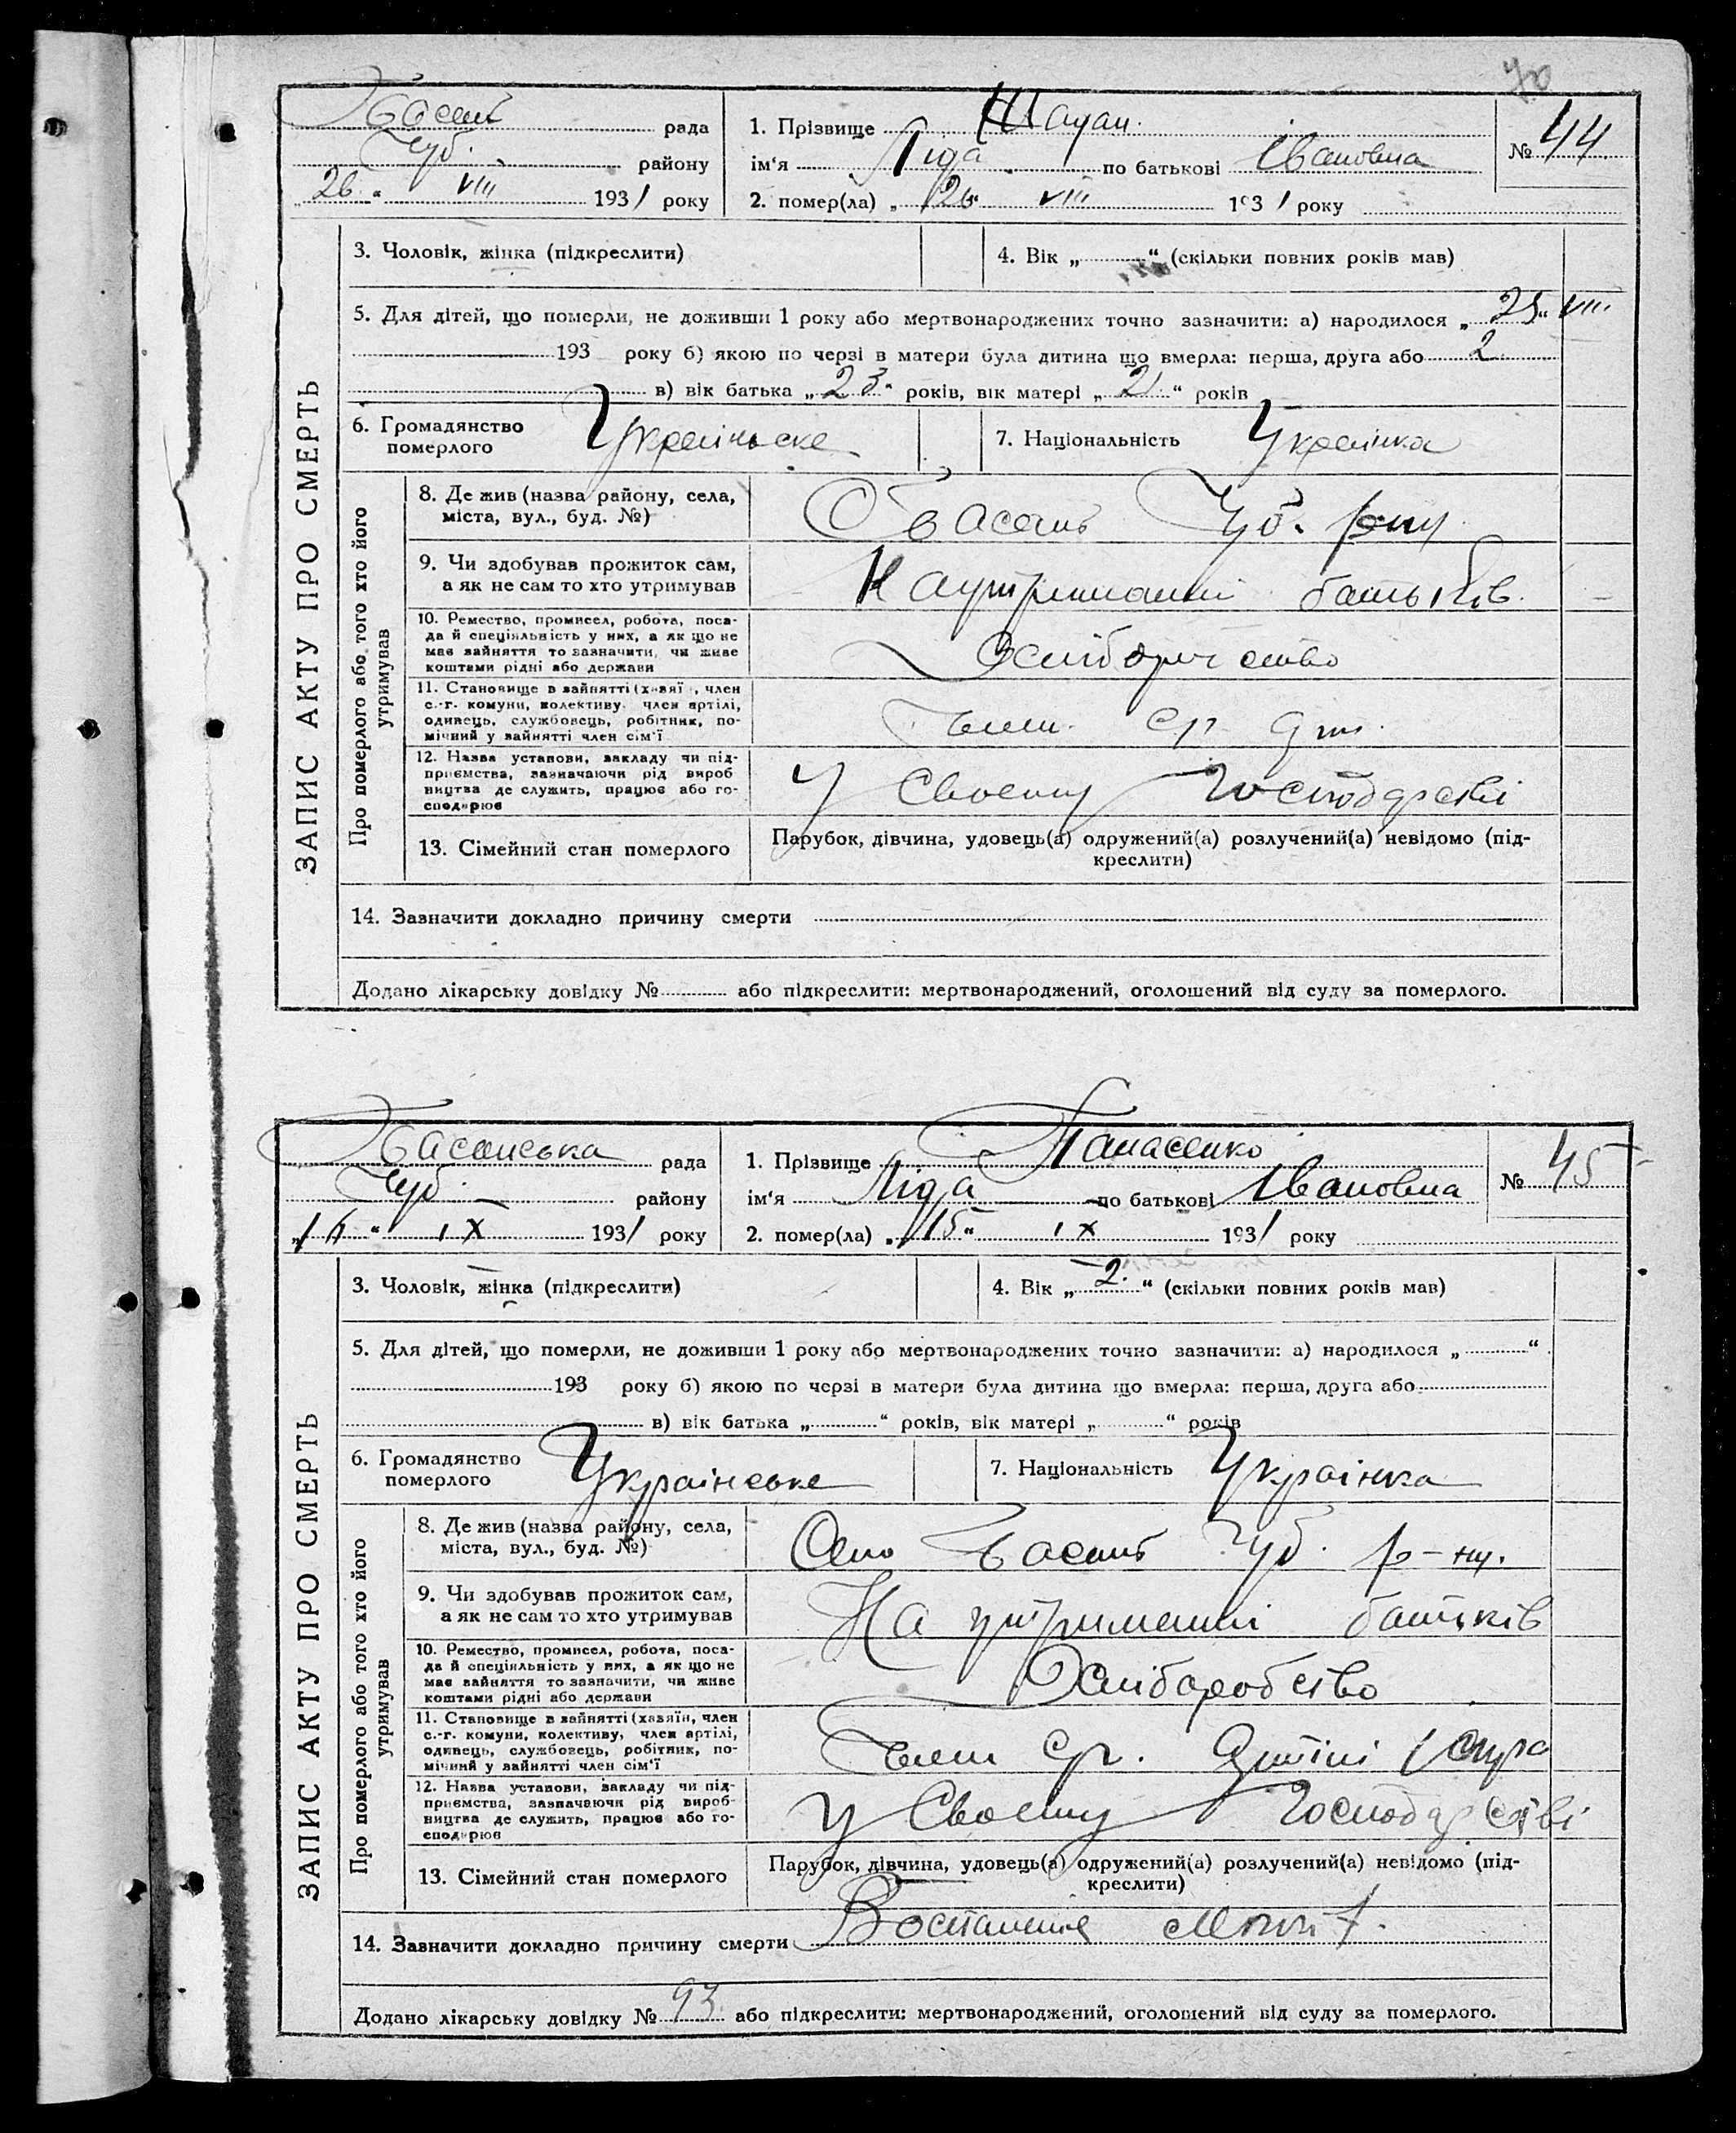 40
Басань рада
Чуб. району
„26“ VIII 1931 року
1. Прізвище Шаган
ім‘я Ліда по батькові Івановна
2. помер(ла) „26“ VIII 1931 року
№ 44
ЗАПИС АКТУ ПРО СМЕРТЬ
3. Чоловік, жінка (підкреслити)
4. Вік „ “ (скільки повних років мав)
5. Для дітей, що померли, не доживши 1 року або мертвонароджених точно зазначити: а) народилося „25“ VIII
193 року б) якою по черзі в матери була дитина що вмерла: перша, друга або 2
в) вік батька „23“ років, вік матері „21“ років
6. Громадянство
померлого
Українське
7. Національність Українка
Про померлого або того хто його
утримував
8. Де жив (назва району, села,
міста, вул., буд. №)
Басань Чуб. р-ну
9. Чи здобував прожиток сам,
а як не сам то хто утримував
На утриманні батьків
10. Ремество, промисел, робота, поса-
да й спеціяльність у них, а як що не
має зайняття то зазначити, чи живе
коштами рідні або держави
11. Становище в зайнятті (хазяїн, член
с.-г. комуни, колективу, член артілі,
одинець, службовець, робітник, по-
мічний у зайнятті член сім‘ї
Член
12. Назва установи, закладу чи під-
приємства, зазначаючи рід вироб
ництва де служить, працює або го-
сподарює
У своєму господарстві
13. Сімейний стан померлого
Парубок, дівчина, удовець(а) одружений(а) розлучений(а) невідомо (під-
креслити)
14. Зазначити докладно причину смерти
Додано лікарську довідку № або підкреслити: мертвонароджений, оголошений від суду за померлого.
Басанська рада
Чуб. району
„16“ IX 1931 року
1. Прізвище Панасенко
ім‘я Ліда по батькові Івановна
2. помер(ла) „15“ IX 1931 року
№ 45
ЗАПИС АКТУ ПРО СМЕРТЬ
3. Чоловік, жінка (підкреслити)
4. Вік „2“ (скільки повних років мав)
5. Для дітей, що померли, не доживши 1 року або мертвонароджених точно зазначити: а) народилося „ “
193 року б) якою по черзі в матери була дитина що вмерла: перша, друга або
в) вік батька „ “ років, вік матері „ “ років
6. Громадянство
померлого
Українське
7. Національність Українка
Про померлого або того хто його
утримував
8. Де жив (назва району, села,
міста, вул., буд. №)
Село Басань Чуб. р-ну.
9. Чи здобував прожиток сам,
а як не сам то хто утримував
На утриманні батьків
10. Ремество, промисел, робота, поса-
да й спеціяльність у них, а як що не
має зайняття то зазначити, чи живе
коштами рідні або держави
Хліборобство
11. Становище в зайнятті (хазяїн, член
с.-г. комуни, колективу, член артілі,
одинець, службовець, робітник, по-
мічний у зайнятті член сім‘ї
Член
12. Назва установи, закладу чи під-
приємства, зазначаючи рід вироб-
ництва де служить, працює або го-
сподарює
У своєму господарстві
13. Сімейний стан померлого
Парубок, дівчина, удовець(а) одружений(а) розлучений(а) невідомо (під-
креслити)
14. Зазначити докладно причину смерти
Додано лікарську довідку № 93 або підкреслити: мертвонароджений, оголошений від суду за померлого.